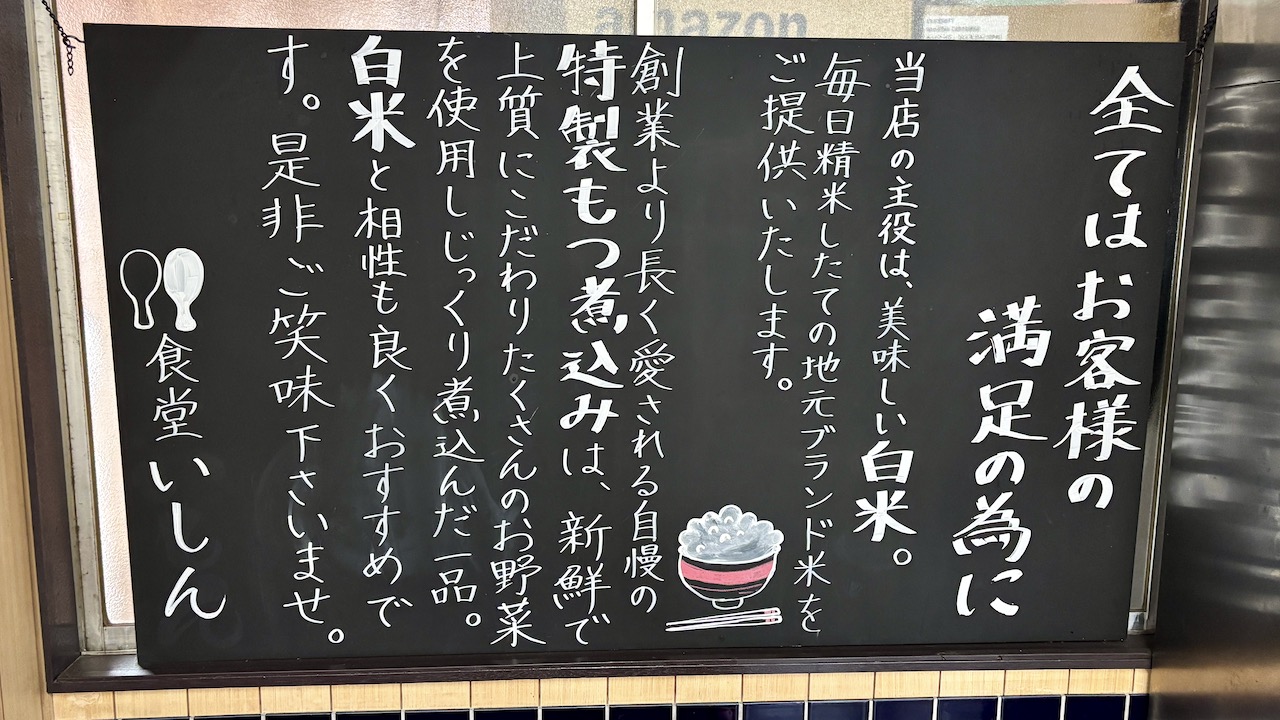 全てはお客様の
満足の為に
当店の主役は、美味しい白米。
毎日精米したての地元ブランド米を
ご提供いたします。
創業より長く愛される自慢の
特製もつ煮込みは、新鮮で
上質にこだわりたくさんのお野菜
を使用しじっくり煮込んだ一品。
白米と相性も良くおすすめで
す。是非ご笑味下さいませ。
食堂いしん
amazon